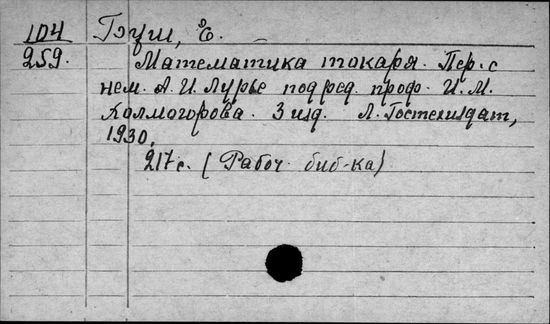 104 Бэуш, Е.
259. Математика токаря. Пер. с
нем. А. И. Лурье под ред. проф. И. М.
Холмогорова. 3 изд. Л. Гостехиздат,
1930.
217 с. (Рабоч. биб-ка)